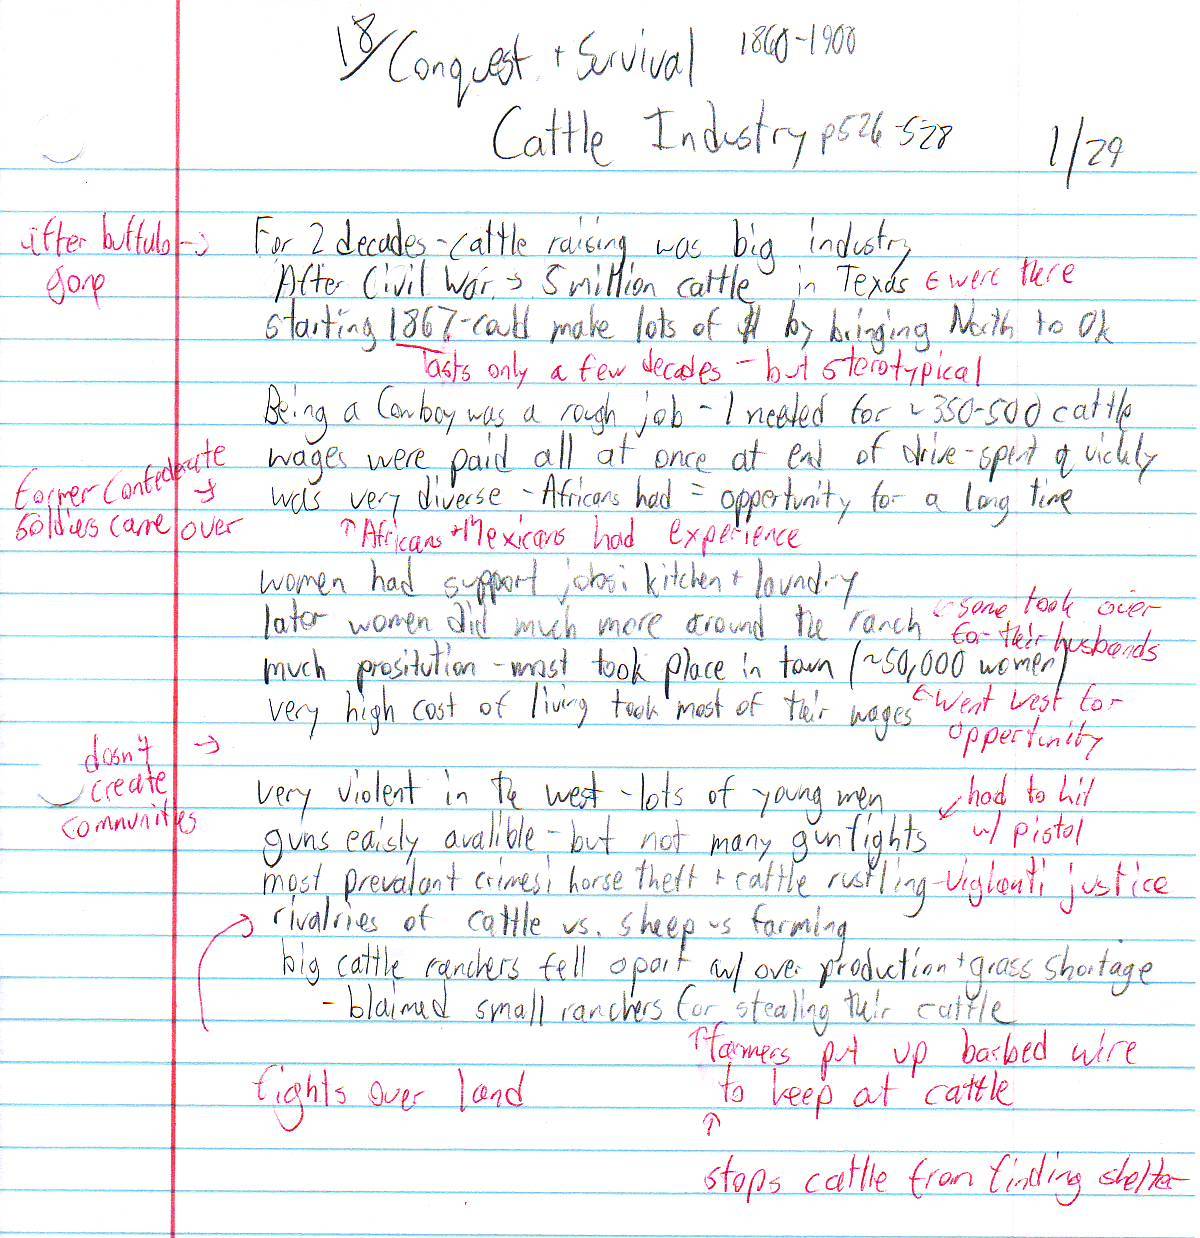 18/Conquest + Survival 1860-1900
Cattle Industry p526-528 1/29
after buffulo → For 2 decades - cattle raising was big industry
gone After Civil War → 5 million cattle in Texas ← were there
starting 1867 - could make lots of $ by bringing North to Ok
lasts only a few decades - but sterotypical
Being a Cowboy was a rough job - 1 needed for ~350-500 cattle
wages were paid all at once at end of drive - spent quickly
Former Confederate → was very diverse - Africans had = opportunity for a long time
soldiers came over ↑ Africans + Mexicans had experience
women had support jobs: kitchen + laundry
later women did much more around the ranch ← some took over
for their husbands
much prositution - most took place in town (~50,000 women)
very high cost of living took most of their wages ← Went west for
oppertunity
dosn't →
create
communities
very violent in the west - lots of young men had to hit
guns eaisly avalible - but not many gunfights ↙ w/ pistol
most prevalant crimes: horse theft + cattle rustling - viglanti justice
rivalries of cattle vs. sheep vs farming
big cattle ranchers fell apart w/ over production + grass shortage
- blaimed small ranchers for stealing their cattle
↑ farmers put up barbed wire
fights over land to keep out cattle
↑
stops cattle from finding shelter